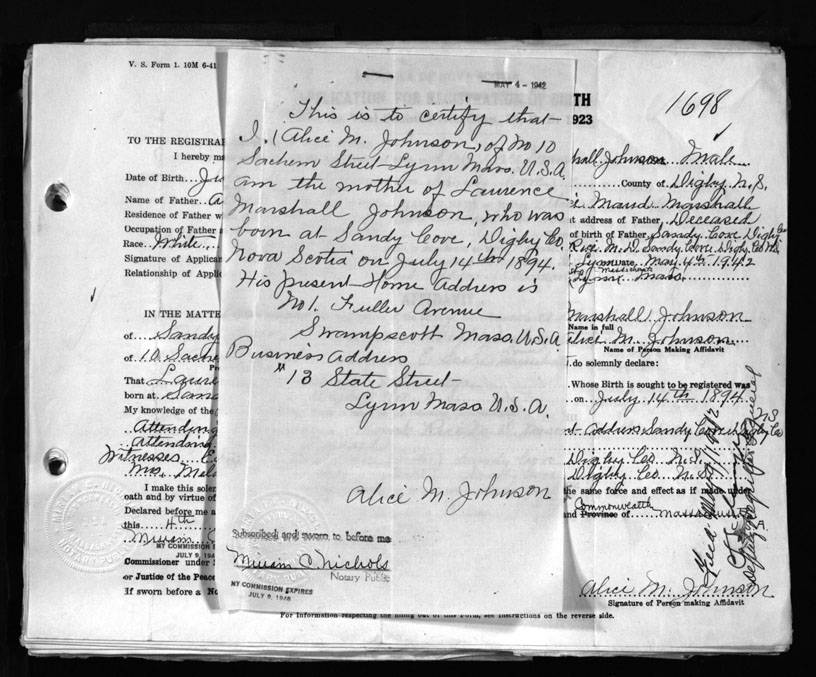 V. S. Form 1. 10M 6-41
TO THE REGISTRA
I hereby m
Date of Birth
Name of Father
Residence of Father w
Occupation of Father
Race White
Signature of Applican
Relationship of Appli
IN THE MATTE
of Sandy
of 10 Sache
That Laure
born at Sand
My knowledge of the
Attending
Attending
Witnesses
Mrs. Mel
I make this sole
oath and by virtue of
Declared before me a
this 4th
Miriam C
MY COMMISSION E
JULY 9, 194
Commissioner under
or Justice of the Peace
If sworn before a No
MAY 4 - 1942
This is to certify that
I, (Alice M. Johnson, of No 10
Sachem Street Lynn Mass. U.S.A.
am the mother of Laurence
Marshall Johnson, who was
born at Sandy Cove, Digby Co,
Nova Scotia on July 14th 1894.
His present Home Address is
No 1. Fuller Avenue
Swampscott Mass. U.S.A
Business Address
#13 State Street
Lynn Mass U.S.A.
Alice M. Johnson
Subscribed and sworn to before me
Miriam C. Nichols
Notary Public
MY COMMISSION EXPIRES
JULY 9, 1948
TH
1698
923
hall Johnson Male
County of Digby N.S.
Maud Marshall
t address of Father, Deceased
of birth of Father Sandy Cove Digby Co
M.D. Sandy Cove, Digby Co N.S.
Lynn Date, May 4th 1942
Lynn Mass.
Marshall Johnson
Name in full
Alice M. Johnson
Name of Person Making Affidavit
do solemnly declare:
Whose Birth is sought to be registered was
on July 14th 1894
nt Address Sandy Cove Digby Co
N.S
Digby Co. N.S.
Digby Co. N.S.
he same force and effect as if made under
Commonwealth
and Province of Massachusetts
Alice M. Johnson
Signature of Person making Affidavit
For Information respecting the filling out of this Form, see Instructions on the reverse side.